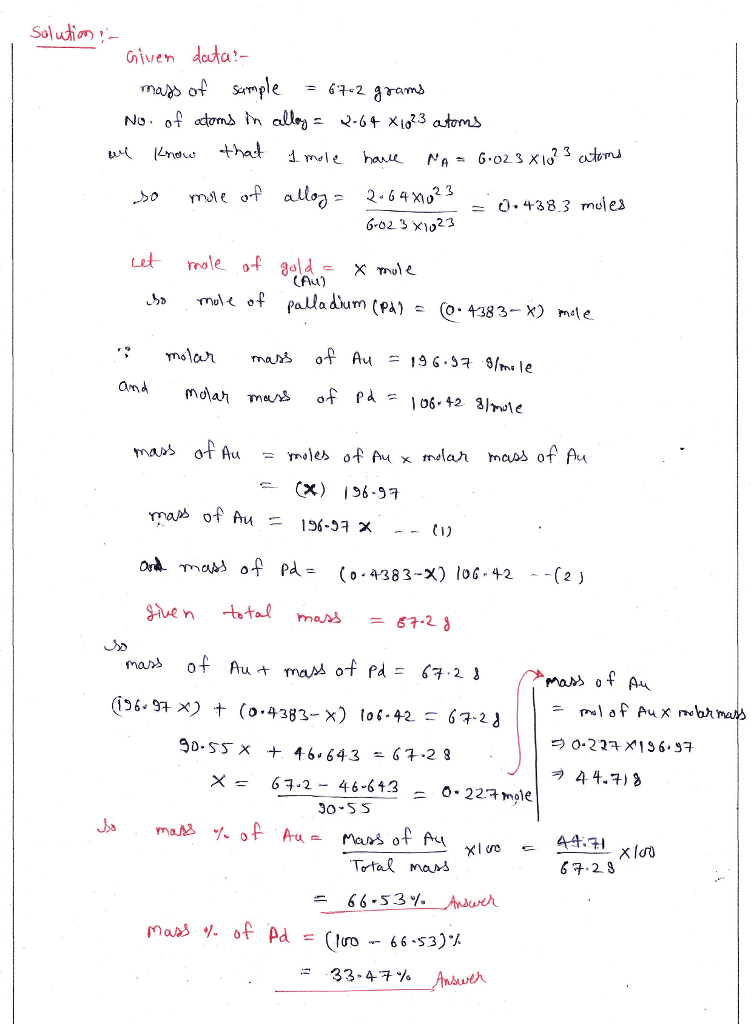 Solution :-
Given data:-
mass of sample = 67.2 grams
No. of atoms in alloy = 2.64 X10²³ atoms
we know that 1 mole have NA = 6.023 X10²³ atoms
so mole of alloy = 2.64X10²³ / 6.023 X10²³ = 0.4383 moles
Let mole of gold (Au) = X mole
so mole of palladium (Pd) = (0.4383-X) mole
∵ molar mass of Au = 196.97 g/mole
and molar mass of Pd = 106.42 g/mole
mass of Au = moles of Au x molar mass of Au
= (X) 196.97
mass of Au = 196.97 X -- (1)
and mass of Pd = (0.4383-X) 106.42 --(2)
given total mass = 67.2 g
so
mass of Au + mass of Pd = 67.2 g
(196.97 X) + (0.4383-X) 106.42 = 67.2g
90.55 X + 46.643 = 67.2 g
X = 67.2 - 46.643 / 90.55 = 0.227 mole
mass of Au
= mol of Au X molar mass
⇒ 0.227 X196.97
⇒ 44.71 g
so mass % of Au = Mass of Au / Total mass X100 = 44.71 / 67.2g X100
= 66.53 % Answer
Mass % of Pd = (100 - 66.53)%
= 33.47 % Answer